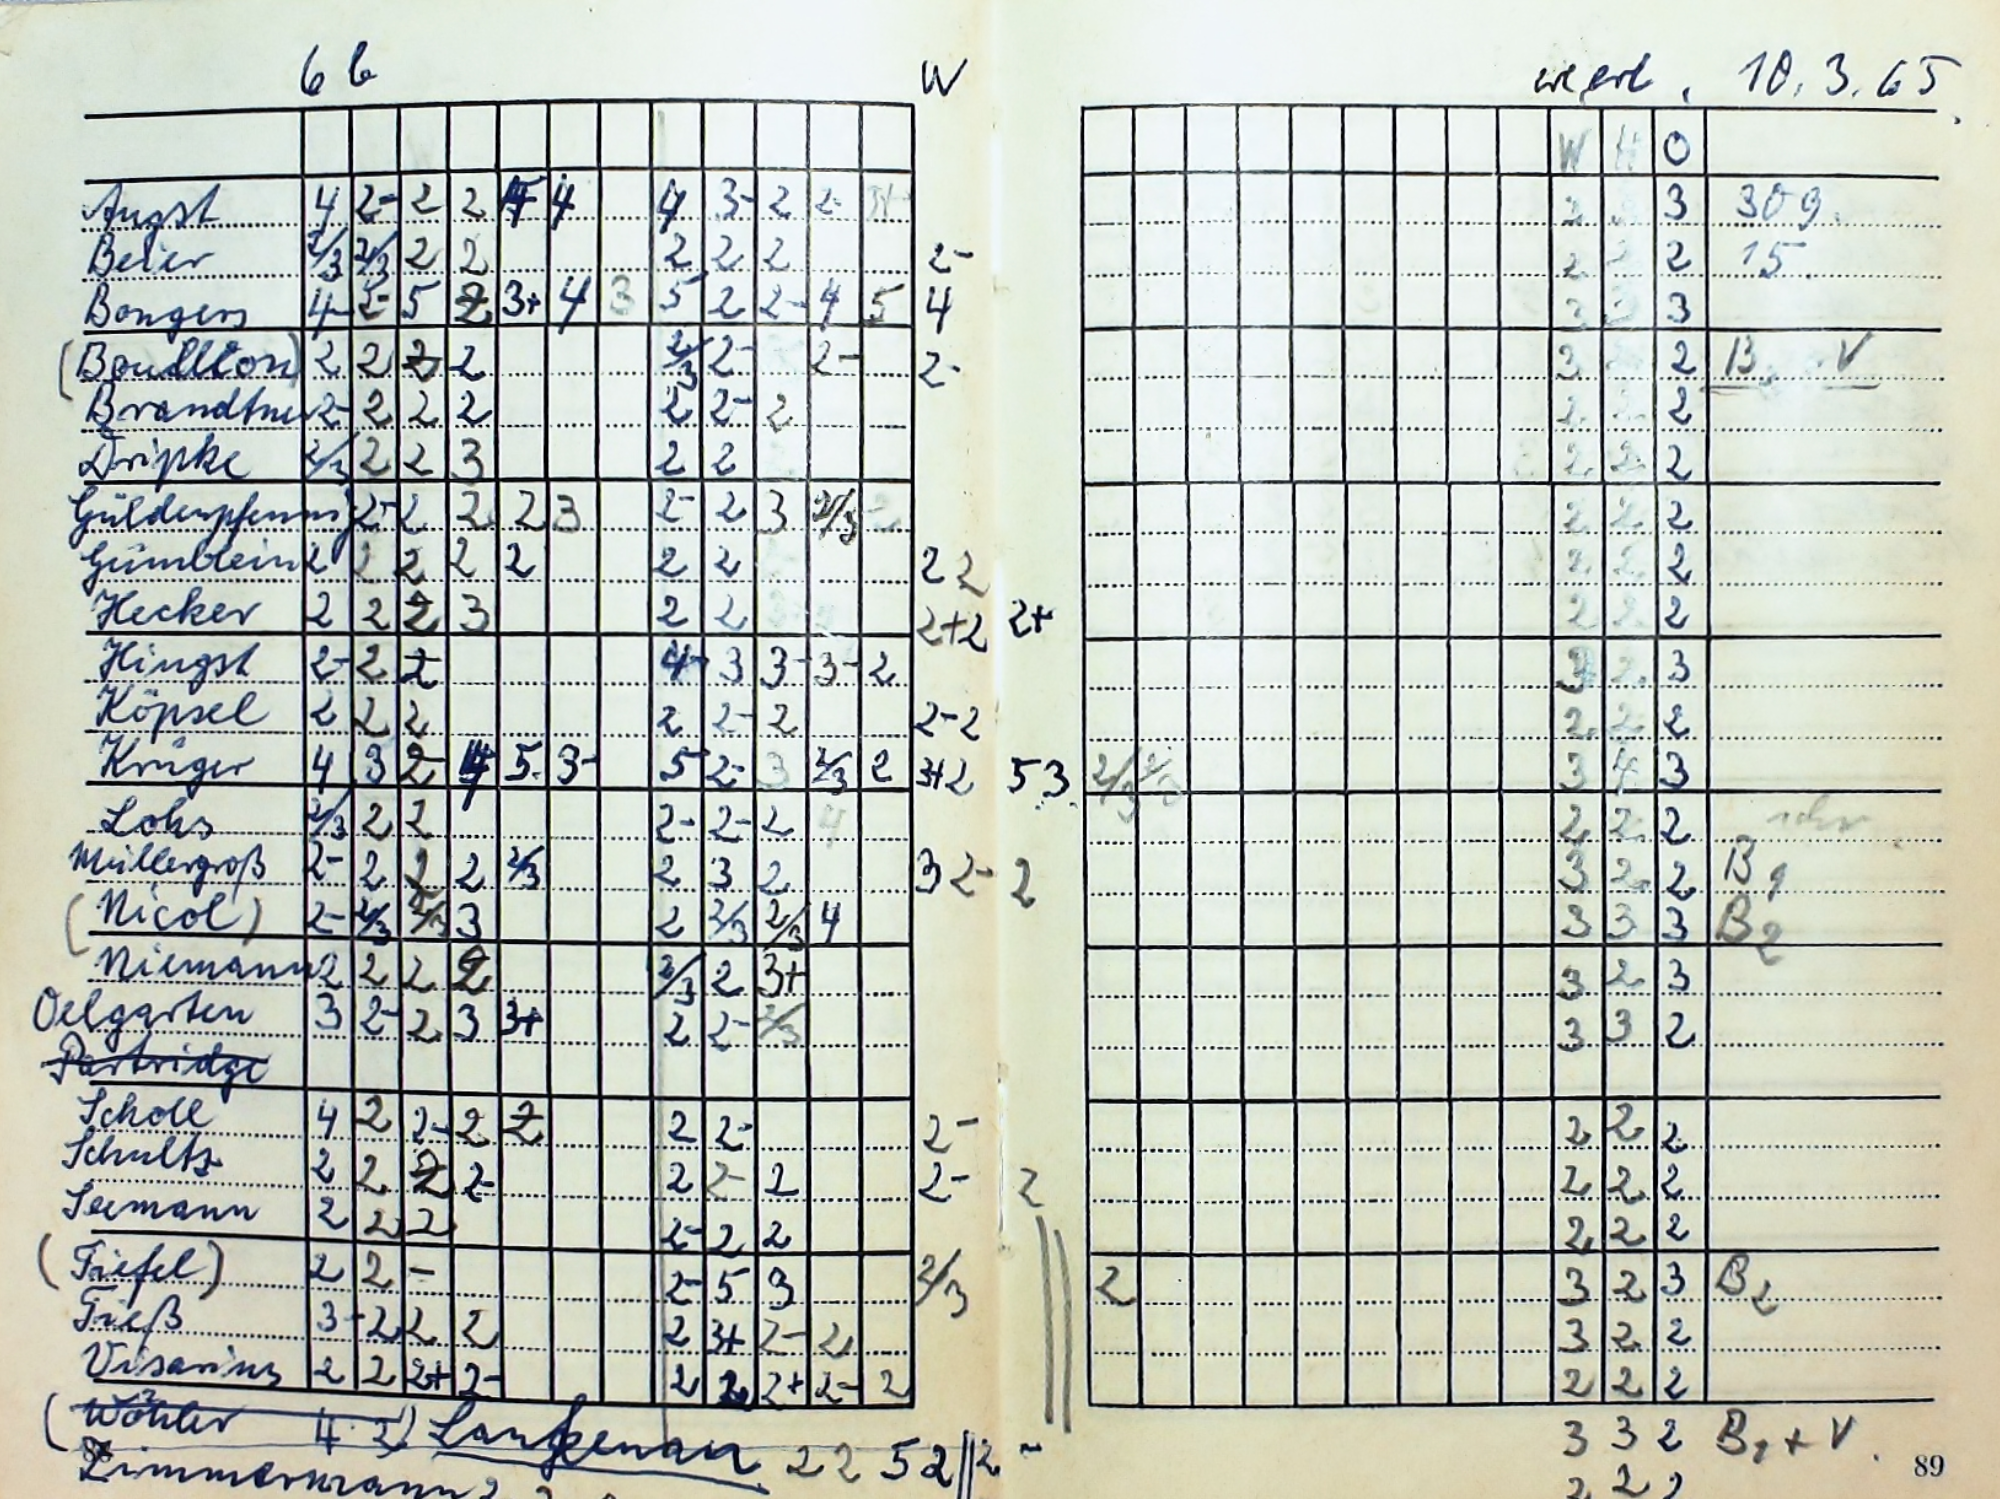 6 b W 10.3.65
W H O
Angst 4 2- 2 2 4 4 4 3- 2 2- 2 3 309.
Beier 2/3 2/3 2 2 2 2 2 2- 2 2 2 15.
Bongers 4- 2- 5 2 3+ 4 3 5 2 2- 4 5 4 3 3 3
(Boudllon) 2 2 2 2 2/3 2- 2- 2- 3 2 B V
Brandtner 2- 2 2 2 2 2- 2 2 2 2
Dripke 2/3 2 2 3 2 2 2 2 2
Güldenpfennig 2- 2 2 2 3 2- 2 3 2/3 2 2 2 2
Gümblein 2 2 2 2 2 2 2 2 2 2 2 2
Hecker 2 2 2 3 2 2 2+ 2 2+ 2 2 2
Hingst 2- 2 2 4- 3 3- 3- 2 3 2 3
Köpsel 2 2 2 2 2- 2 2- 2 2 2 2
Krüger 4 3 2- 4 5. 3- 5 2- 3 2/3 2 3+ 2 5 3 2/3 2/3 3 4 3
Lohs 2/3 2 2 2- 2- 2 4 2 2 2
Müllergroß 2- 2 2 2 2/3 2 3 2 3 2- 2 3 2 2 B1
(Nicol) 2- 2/3 2/3 3 2 2/3 2/3 4 3 3 3 B2
Niemann 2 2 2 2 2/3 2 3+ 3 2 3
Oelgarten 3 2- 2 3 3+ 2 2- 2/3 3 3 2
Partridge
Scholl 4 2 2- 2 2 2 2- 2- 2 2 2
Schultz 2 2 2 2- 2 2- 2 2- 2 2 2 2
Seemann 2 2 2 2- 2 2 2 2 2
(Tiefel) 2 2 - 2- 5 3 2/3 2 3 2 3 B2
Tieß 3- 2 2 2 2 3+ 2- 2 3 2 2
Visarius 2 2 2+ 2- 2 2 2+ 2- 2 2 2 2
(Wöhler 4 2) Langenau 2 2 5 2 || 2 - 3 3 2 B1 + V.
Zimmermann 2 2 2 2 2
89